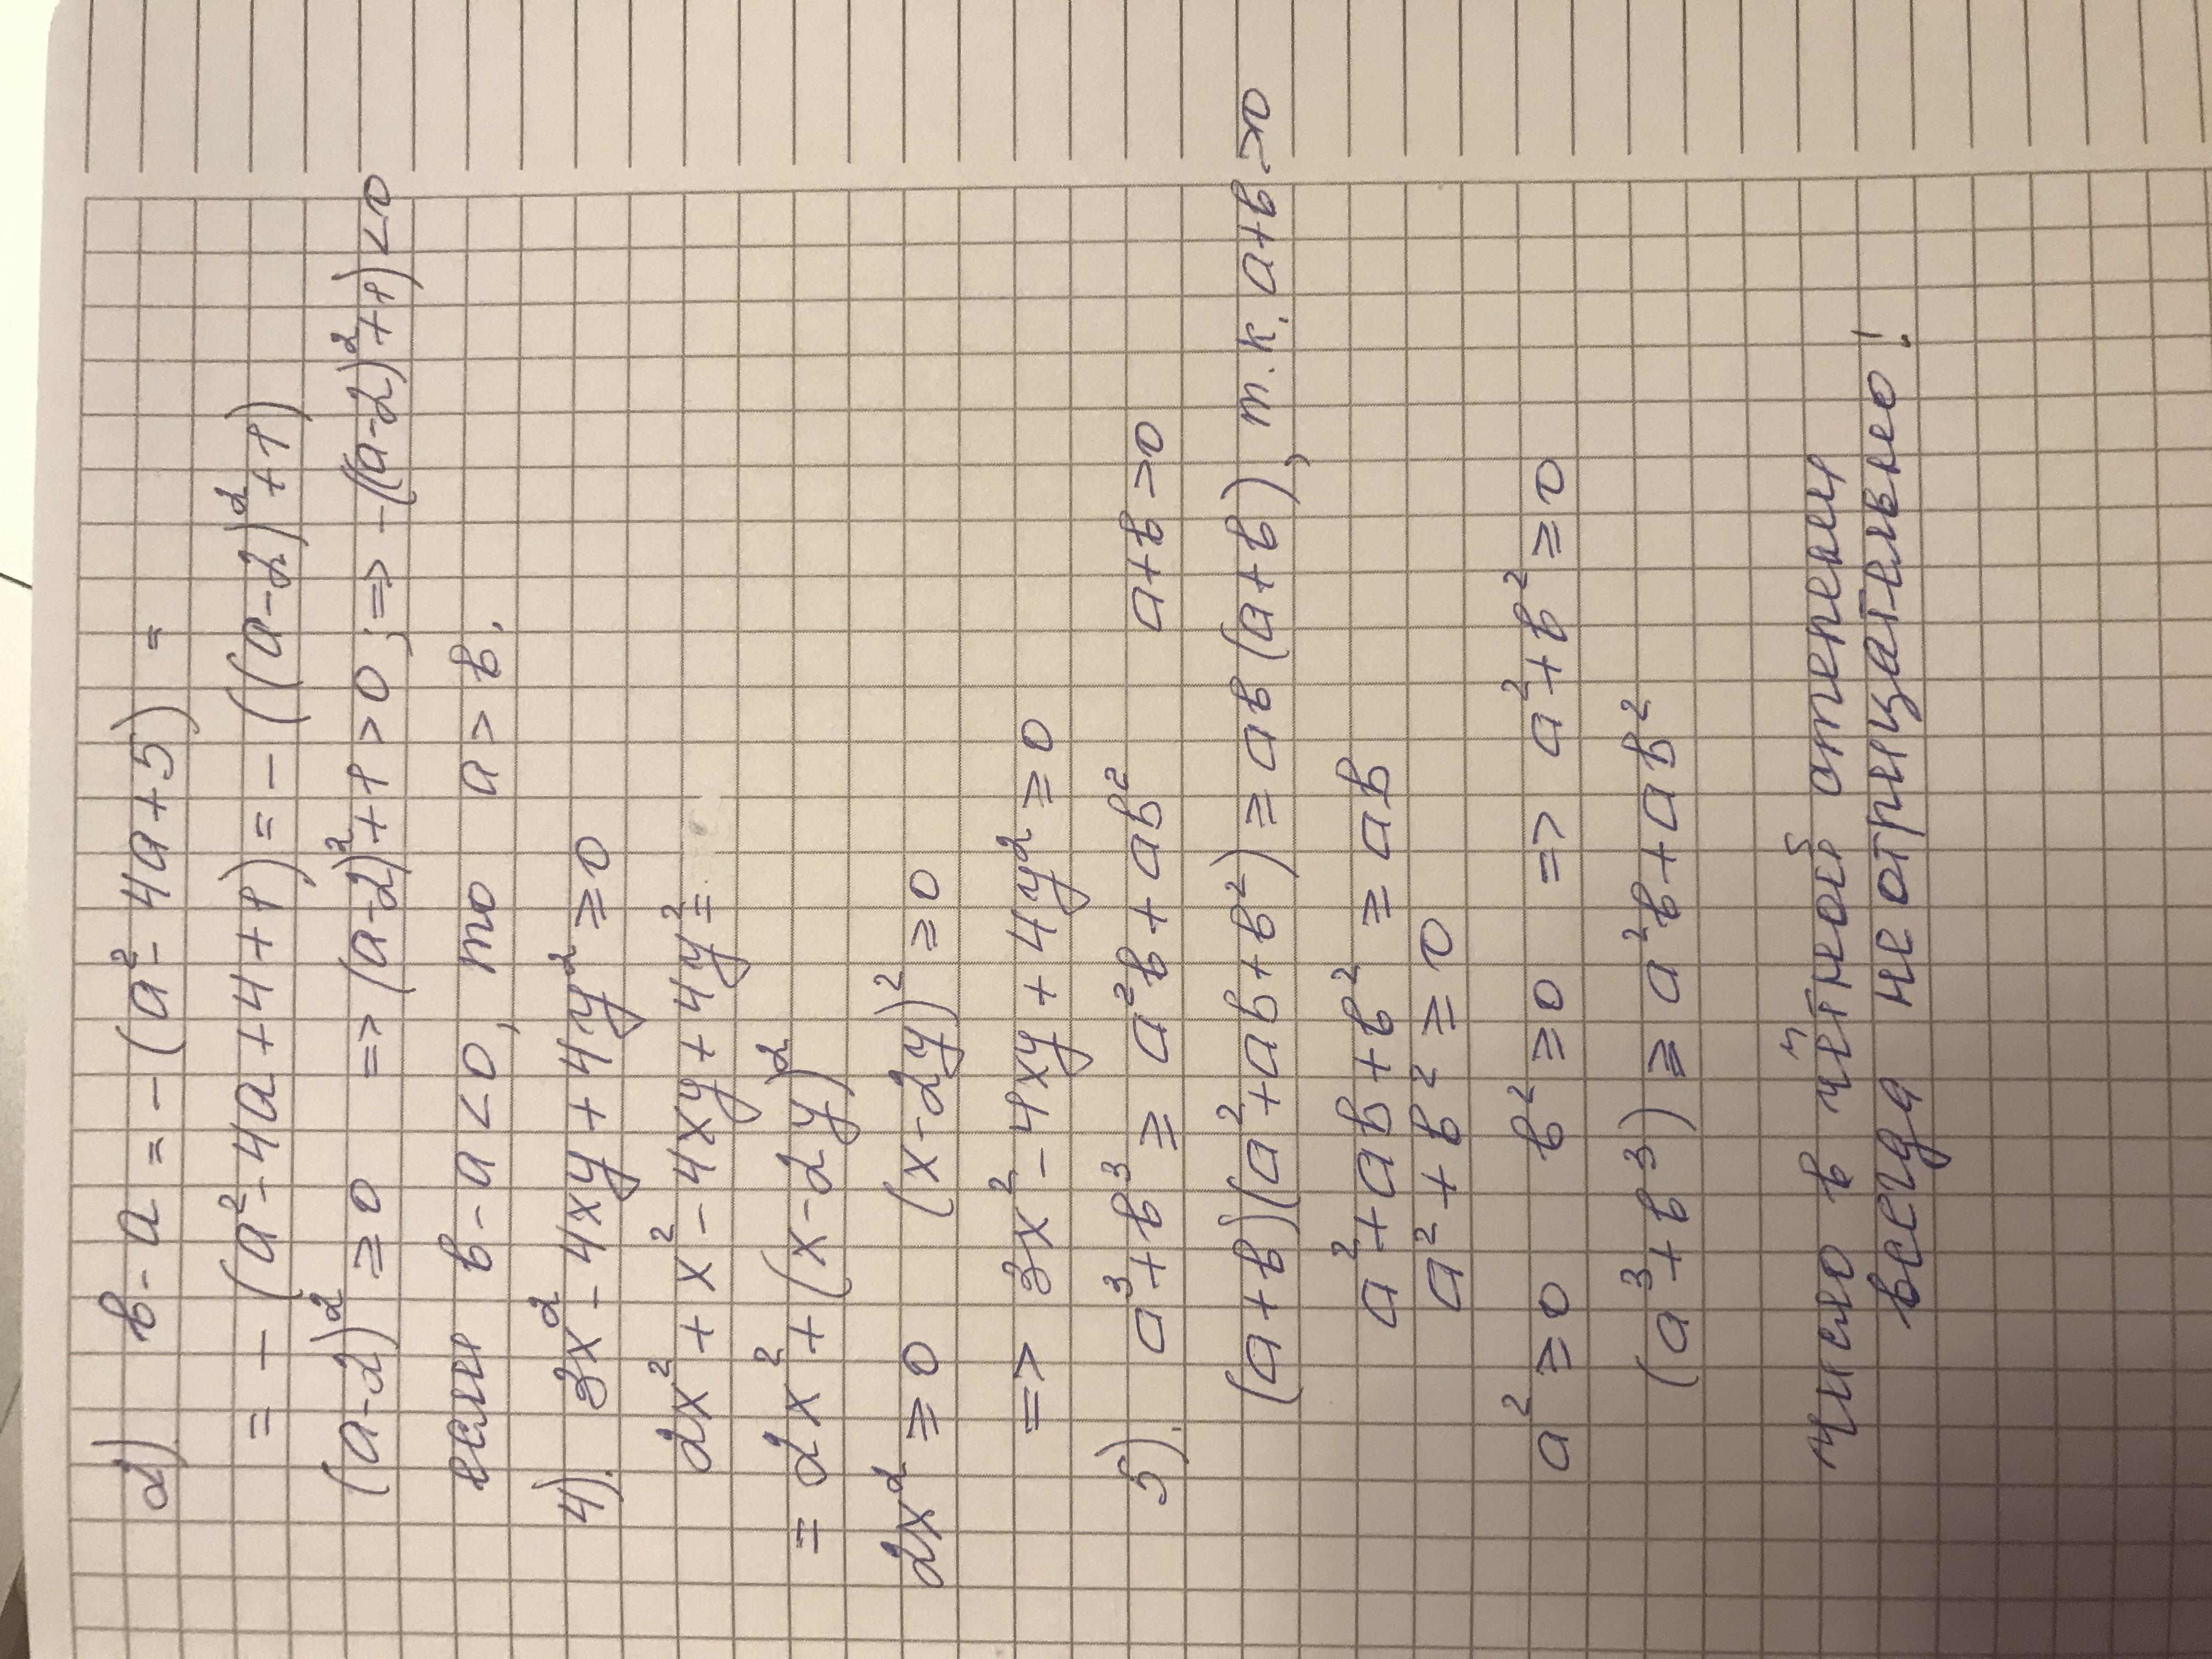 2) в - а = - (а² - 4а + 5) =
= - (а² - 4а + 4 + 1) = - ((а - 2)² + 1)
(а - 2)² ≥ 0 => (а - 2)² + 1 > 0; => - ((а - 2)² + 1) < 0
если в - а < 0, то а > в.
4). 3x² - 4xy + 4y² ≥ 0
2x² + x² - 4xy + 4y² =
= 2x² + (x - 2y)²
2x² ≥ 0 (x - 2y)² ≥ 0
=> 3x² - 4xy + 4y² ≥ 0
5). а³ + в³ ≥ а²в + ав² а + в > 0
(а + в)(а² + ав + в²) ≥ ав (а + в), т.к. а + в > 0
а² + ав + в² ≥ ав
а² + в² ≥ 0
а² ≥ 0 в² ≥ 0 => а² + в² ≥ 0
(а³ + в³) ≥ а²в + ав²
Число в чётной степени
всегда не отрицательно!